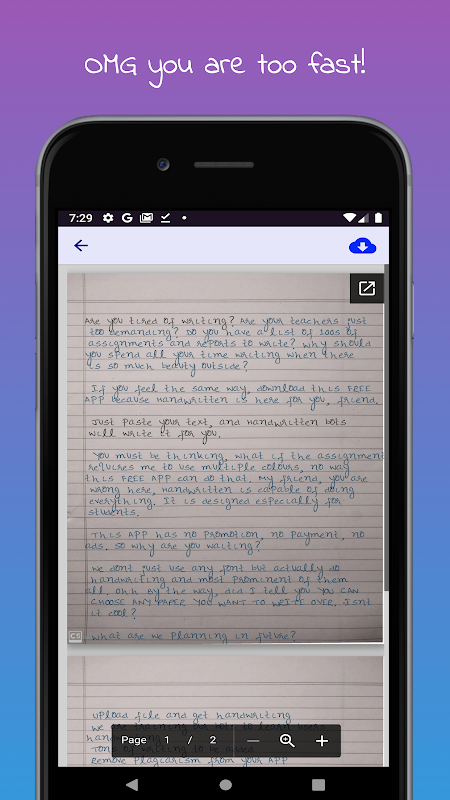 OMG you are too fast!
7:29
Are you tired of writing? Are your teachers just
too demanding? Do you have a list of 100s of
assignments and reports to write? Why should
you spend all your time writing when there
is so much beauty outside?
If you feel the same way, download this FREE
APP because Handwritten is here for you, friend.
Just paste your text, and handwritten bots
will write it for you.
You must be thinking, what if the assignment
requires me to use multiple colours, no way
this FREE APP can do that. My friend, you are
wrong here, Handwritten is capable of doing
everything. It is designed especially for
students.
This APP has no promotion, no payment, no
ads. So why are you waiting?
We dont just use any font but actually do
handwriting and most prominent of them
all. Ohh By the way, did I tell you YOU CAN
CHOOSE ANY PAPER YOU WANT TO WRITE OVER. Isnt
it cool?
What are we planning in future?
CS
Upload file and get handwriting
we are training our bots to learn users
Page 1 / 2
Tons of writing to be added
Remove plagiarism from your APP